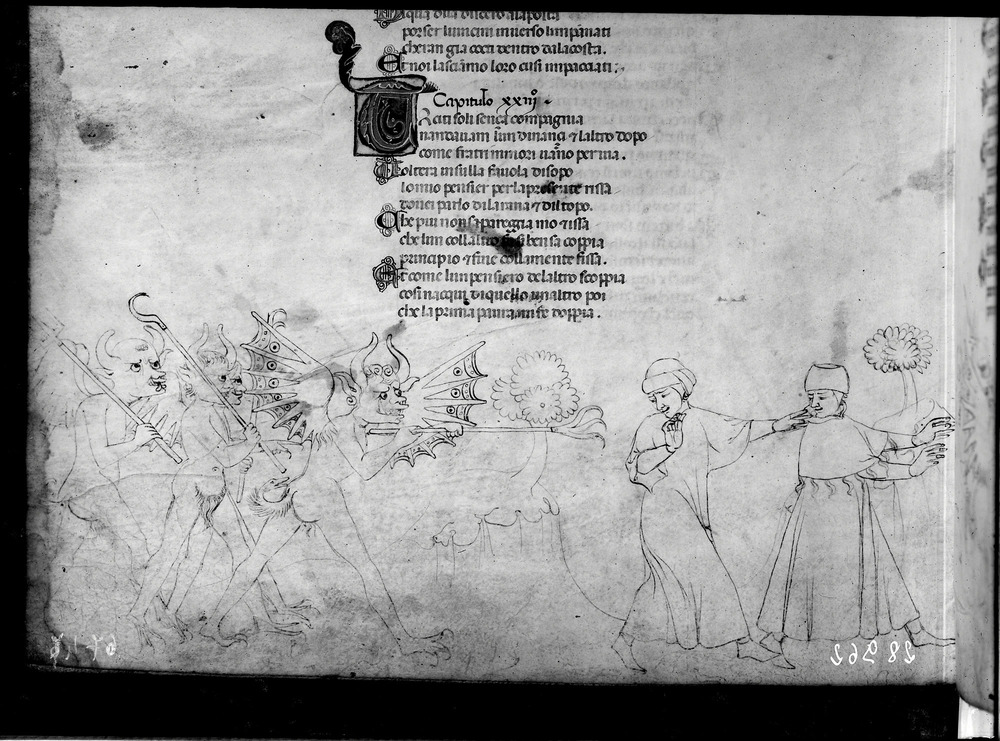 Diqua dila disceso alaposta
porser liuncini inverso limpaniati
cheran gia cocti dentro dalacosta.
Et noi lasciamo loro cusi impacciati:
Capitulo xxiij°
Taciti soli senca compagnia
nandavam lun dinanci ⁊ laltro dopo
come frati minori vano per via.
Volter a insulla favola disopo
lo mio pensier per la presente rissa
dovei parlo dilarana ⁊ diltopo.
Che piu non sapareggia mo ⁊ issa
che lun collaltro fa si ben sa coppia
principio ⁊ fine collamente fissa.
Et come lun pensiero delaltro scoppia
cosi nacqui di quello un altro poi
che la prima paura mi fe doppia.
28962